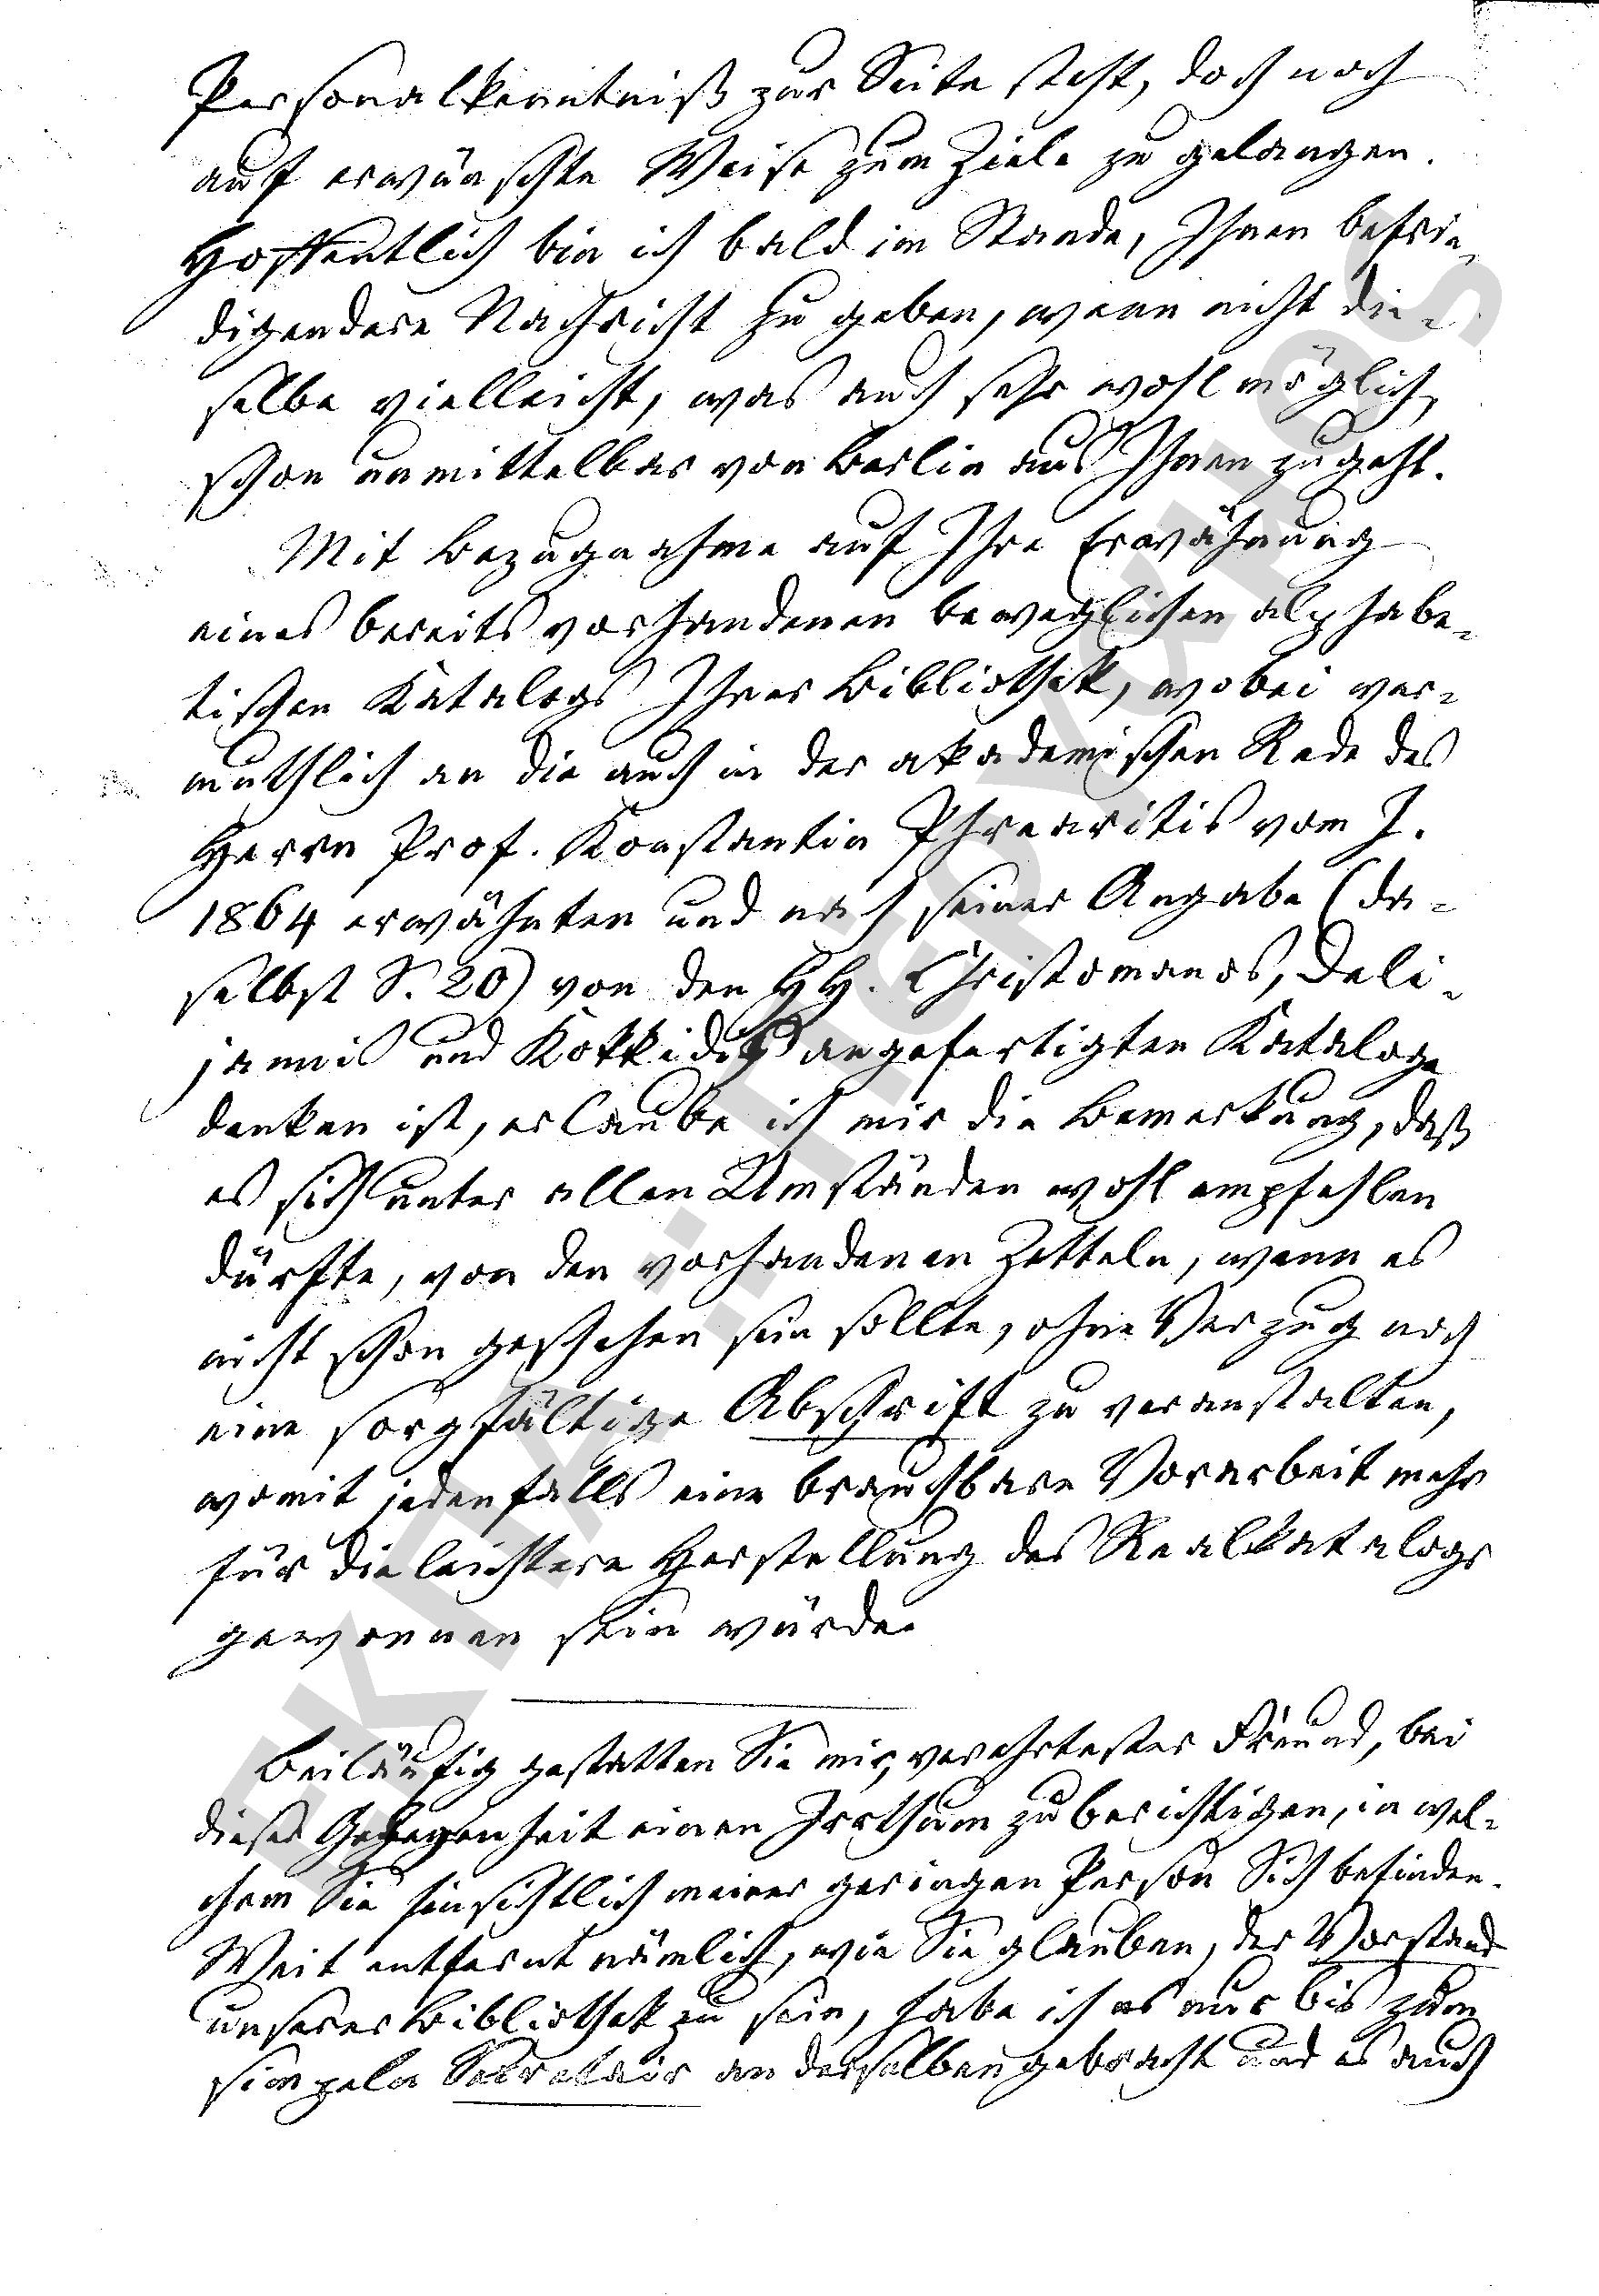 Personalkenntniß zur Seite steht, doch noch
auf erwünschte Weise zum Ziele zu gelangen.
Hoffentlich bin ich bald im Stande, Ihnen befrie-
digendere Nachricht zu geben, wenn nicht die-
selbe vielleicht, was auch sehr wohl möglich,
schon unmittelbar von Berlin aus Ihnen zugeht.
Mit Bezugnahme auf Ihre Erwähnung
eines bereits vorhandenen beweglichen alphabe-
tischen Katalogs Ihrer Bibliothek, wobei ver-
muthlich an die auch in der akademischen Rede des
Herrn Prof. Konstantin Phrearitis vom J.
1864 erwähnten und nach seiner Angabe (da-
selbst S. 20) von den HH. Christomanos, Deli-
jannis und Kokkidis angefertigten Kataloge
denken ist, erlaube ich mir die Bemerkung, daß
es sich unter allen Umständen wohl empfehlen
dürfte, von den vorhandenen Zetteln, wenn es
nicht schon geschehen sein sollte, ohne Verzug noch
eine sorgfältige Abschrift zu veranstalten,
womit jedenfalls eine brauchbare Vorarbeit mehr
für die leichtere Herstellung des Realkatalogs
gewonnen sein würde.
Beiläufig gestatten Sie mir, verehrtester Freund, bei
dieser Gelegenheit einen Irrthum zu berichtigen, in wel-
chem Sie hinsichtlich meiner geringen Person Sich befinden.
Weit entfernt nämlich, wie Sie glauben, der Vorstand
unserer Bibliothek zu sein, habe ich es nur bis zum
simpeln Secretair an derselben gebracht und es auch